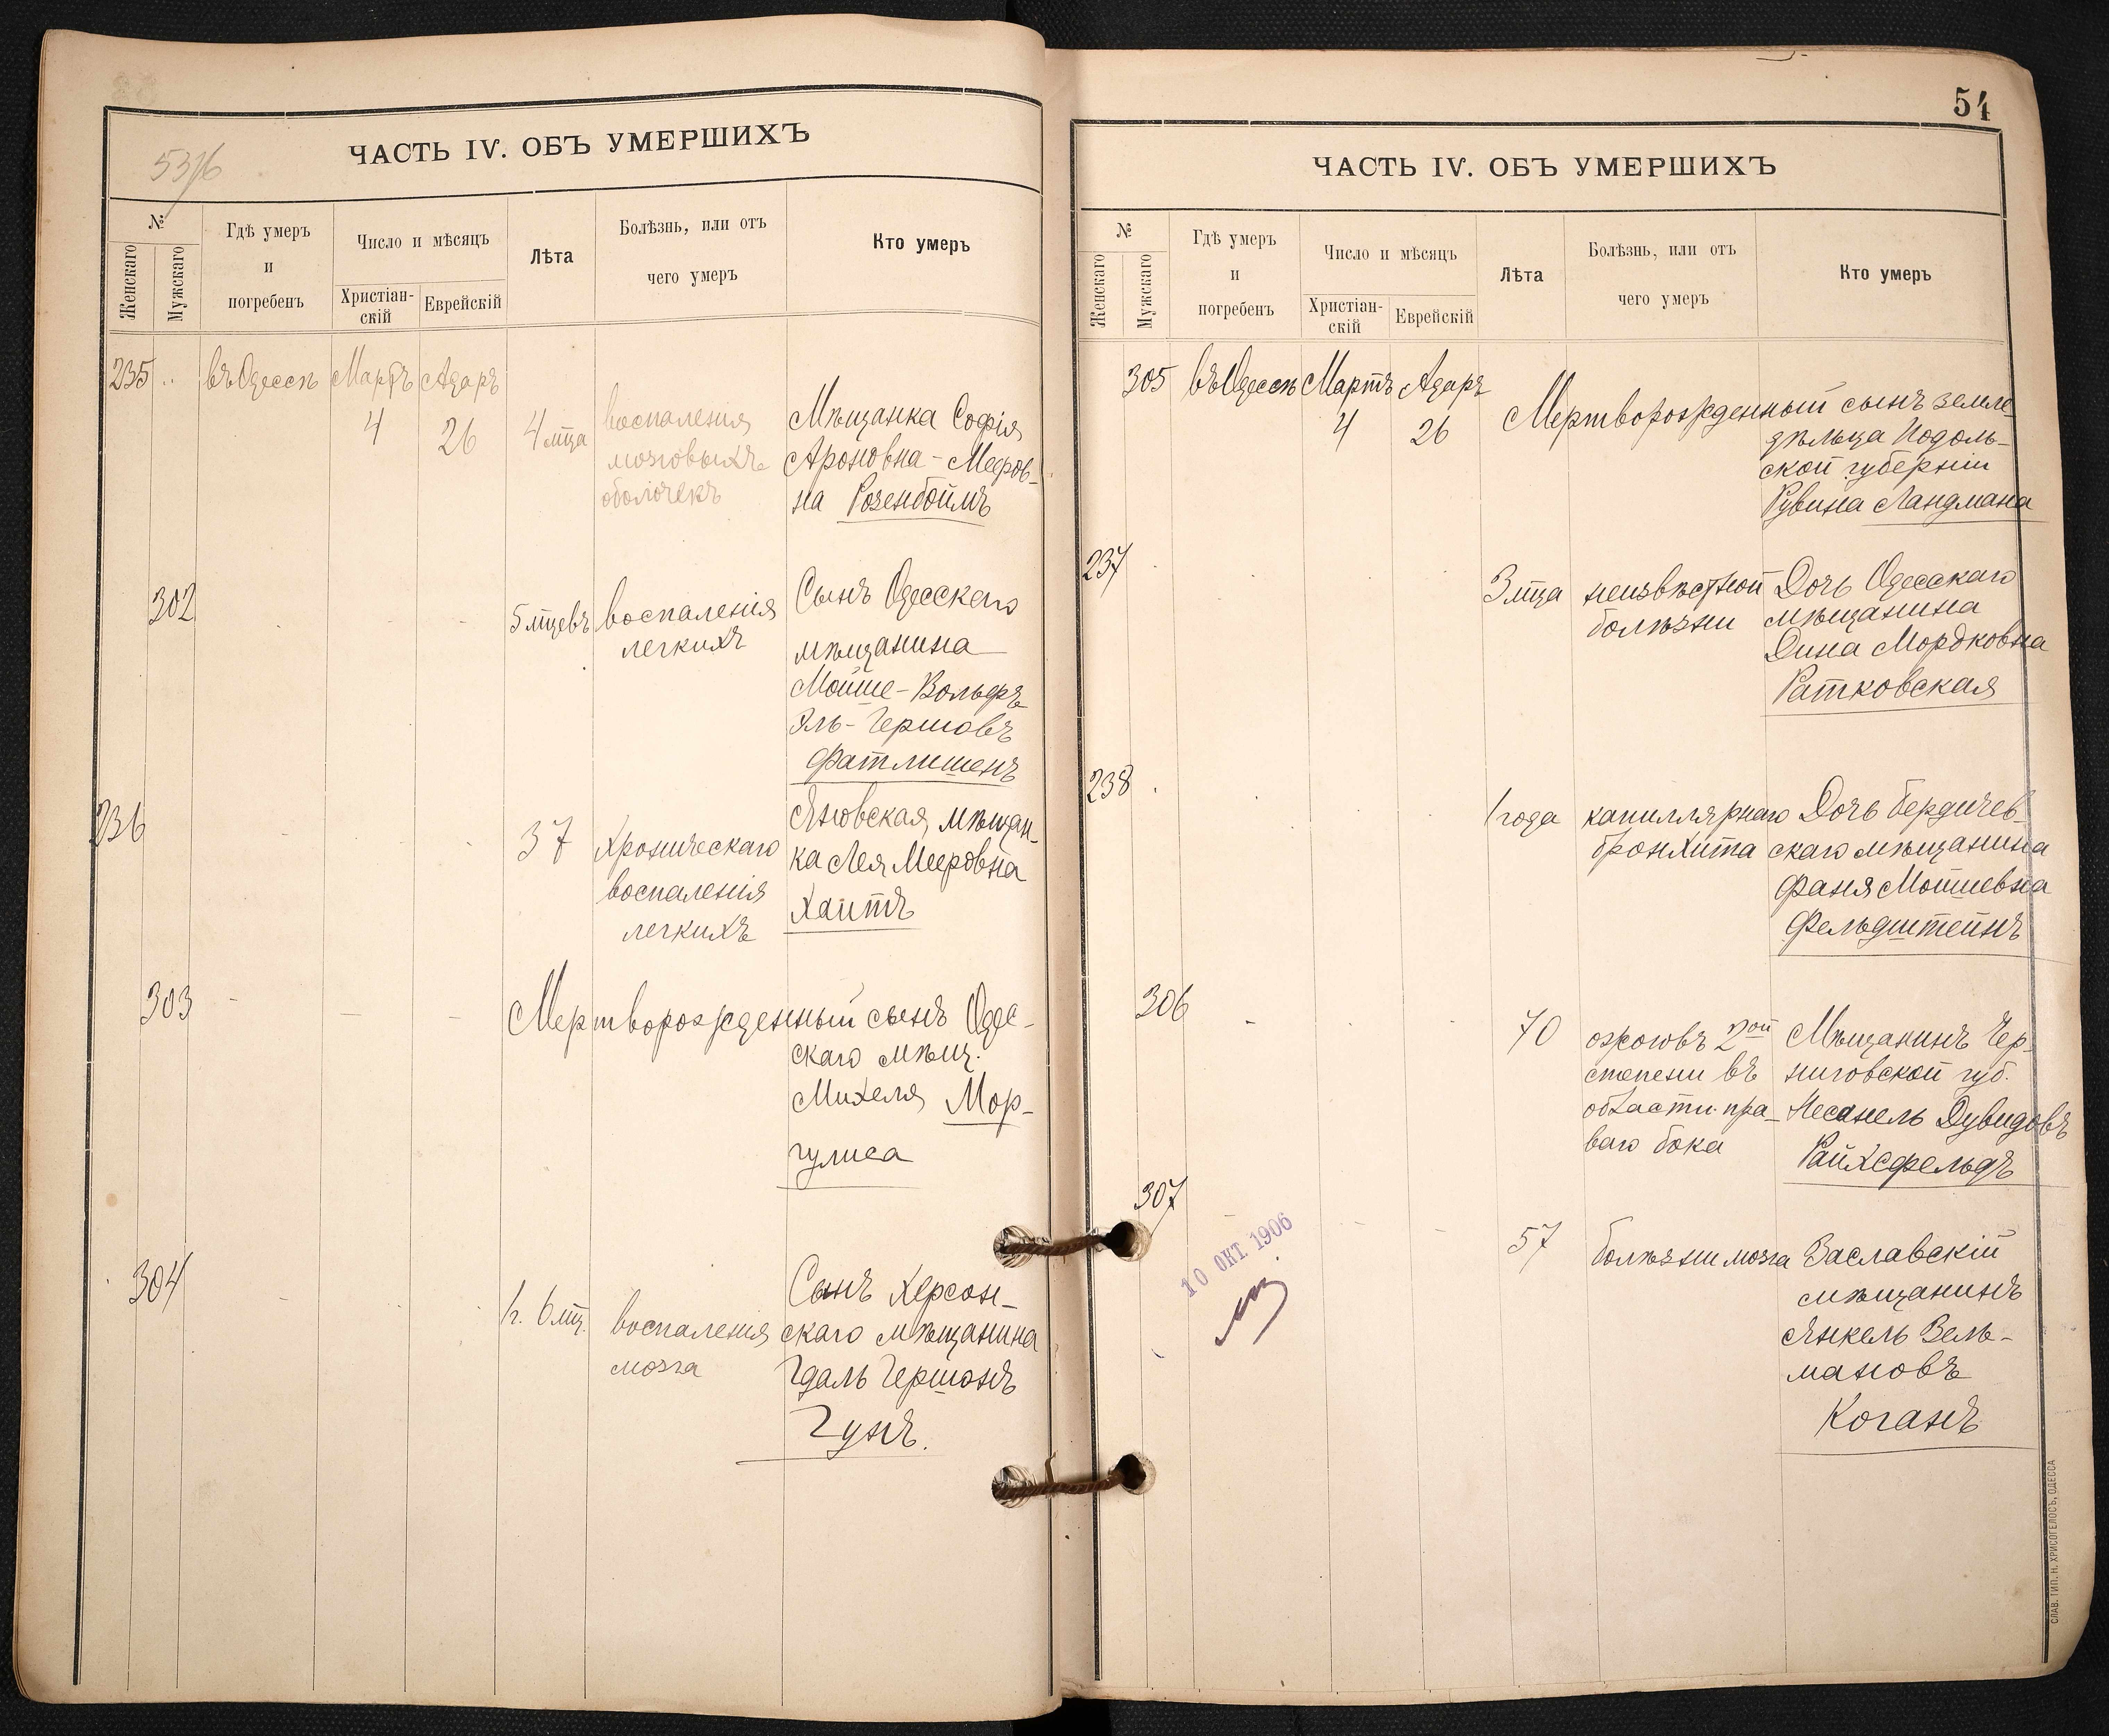 ЧАСТЬ IV. ОБЪ УМЕРШИХЪ
№
Женскаго
Мужскаго
Гдѣ умеръ
и
погребенъ
Число и мѣсяцъ
Христіан-
скій
Еврейскій
Лѣта
Болѣзнь, или отъ
чего умеръ
Кто умеръ
235
въ Одессѣ
Мартъ
4
Адаръ
26
4 мѣца
воспаленія
мозговыхъ
оболочекъ
Мѣщанка Софія
Ароновна-Мееров-
на Розенбоймъ
302
5 мѣцевъ
воспаленія
легкихъ
Сынъ Одесскаго
мѣщанина
Мойше-Вольфъ
Эль-Гершовъ
Фатлишенъ
236
37
Хроническаго
воспаленія
легкихъ
Яновская мѣщан-
ка Лея Мееровна
Хаитъ
303
Мертворожденный сынъ Одес-
скаго мѣщ.
Михеля Мор-
гулиса
304
1 г. 6 мц.
воспаленія
мозга
Сынъ Херсон-
скаго мѣщанина
Гдаль Гершонъ
Гунъ.
54
ЧАСТЬ IV. ОБЪ УМЕРШИХЪ
№
Женскаго
Мужскаго
Гдѣ умеръ
и
погребенъ
Число и мѣсяцъ
Христіан-
скій
Еврейскій
Лѣта
Болѣзнь, или отъ
чего умеръ
Кто умеръ
305
въ Одессѣ
Мартъ
4
Адаръ
26
Мертворожденный сынъ земле-
дѣльца Подоль-
ской губерніи
Рувина Ландмана
237
3 мѣца
неизвѣстной
болѣзни
Дочь Одесскаго
мѣщанина
Дина Мордковна
Ратковская
238
1 года
капиллярнаго
бронхита
Дочь Бердичев-
скаго мѣщанина
Фаня Мошиевна
Фельдштейнъ
306
70
ожоговъ 2ой
степени въ
области пра-
ваго бока
Мѣщанинъ Чер-
ниговской губ.
Несанель Дувидовъ
Райхсфельдъ
307
57
болѣзни мозга
Заславскій
мѣщанинъ
Янкель Зель-
мановъ
Коганъ
10 ОКТ. 1906
СЛАВ. ТИП. Н. ХРИСОГЕЛОСЪ, ОДЕССА